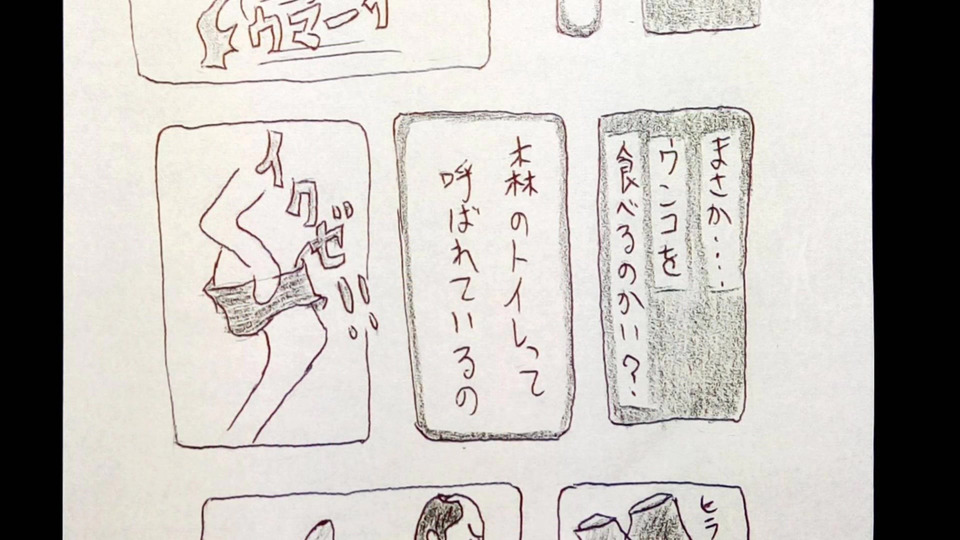 ウマーイ
まさか・・・・
ウンコを
食べるのかい?
森のトイレって
呼ばれているの
イクゼ!!
ヒラ